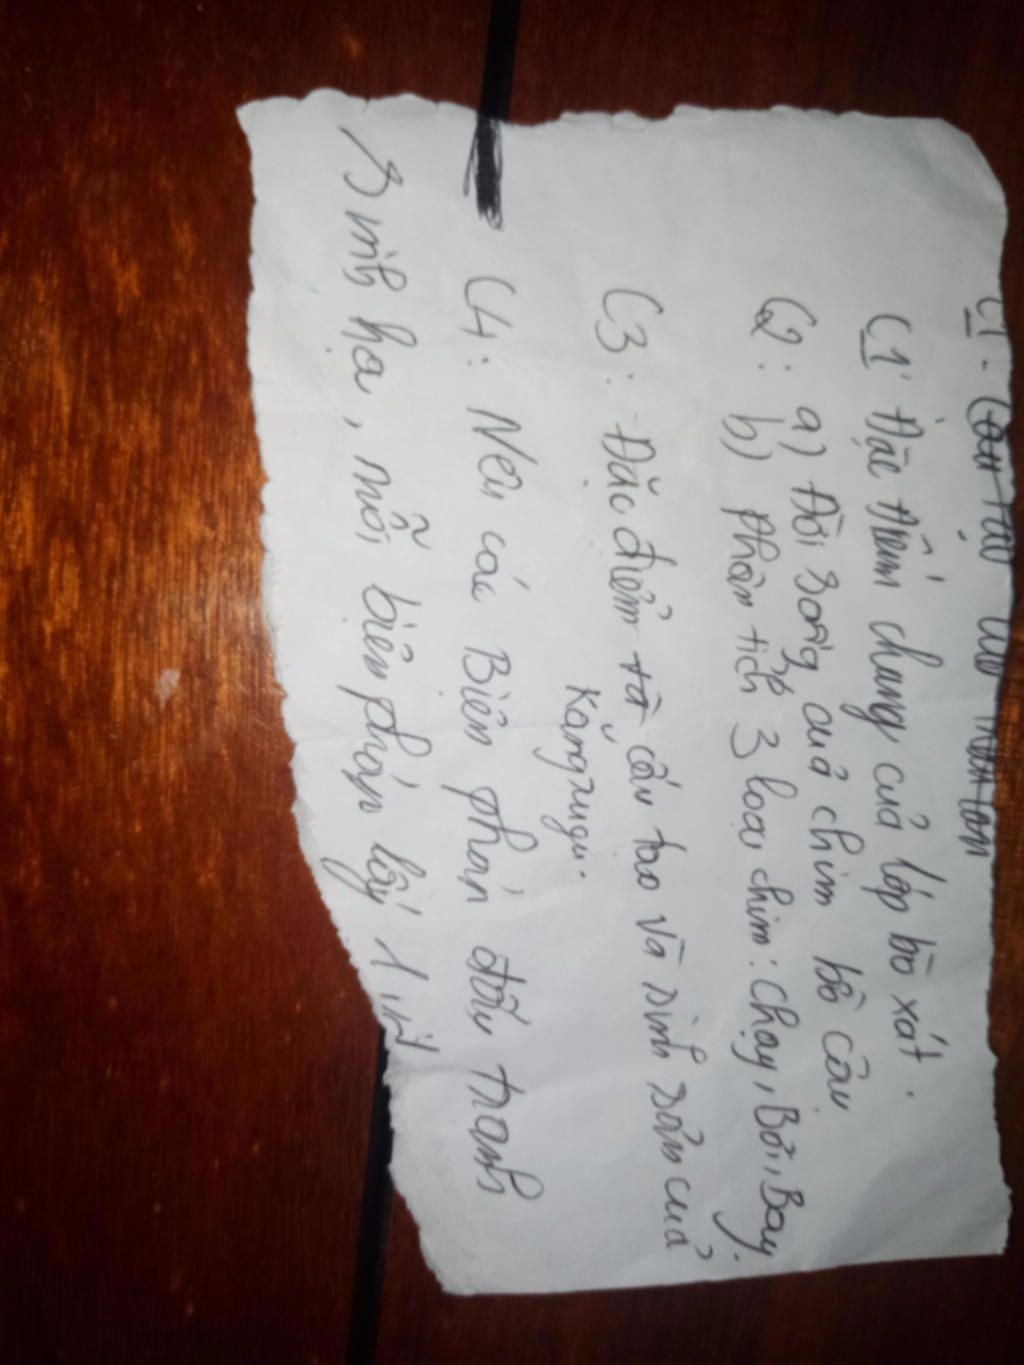 C1: Đặc điểm chung của lớp bò sát.
C2: a) Đời sống của chim bồ câu
b) Phân tích 3 loại chim: Chạy, Bơi, Bay.
C3: Đặc điểm cấu tạo và sinh sản của
Kănguru.
C4: Nêu các Biện pháp đấu tranh
sinh học, mỗi biện pháp lấy 1 VD